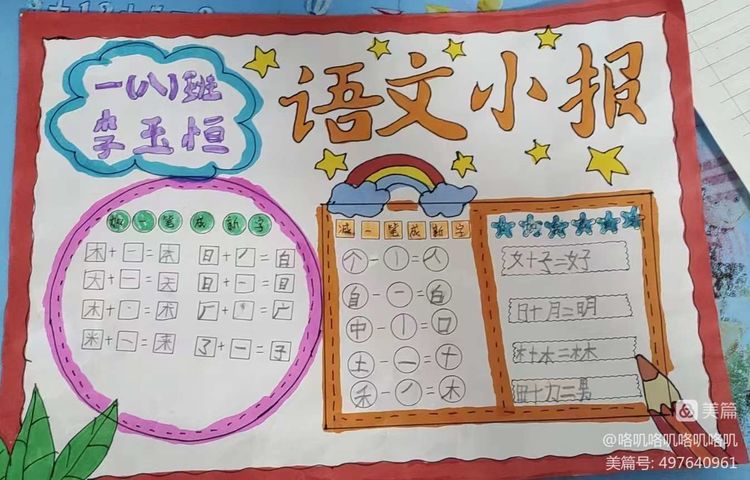 一(八)班
李玉恒
语文小报
加一笔成新字
木+一=本 日+丿=白
大+一=天 日+一=目
木+丶=术 厂+丶=广
米+一=来 了+一=子
减一笔成新字
个-丨=人
自-一=白
中-丨=口
土-一=十
禾-丿=木
女+子=好
日+月=明
木+木=林
田+力=男
美篇
@咯叽咯叽咯叽咯叽
美篇号: 497640961